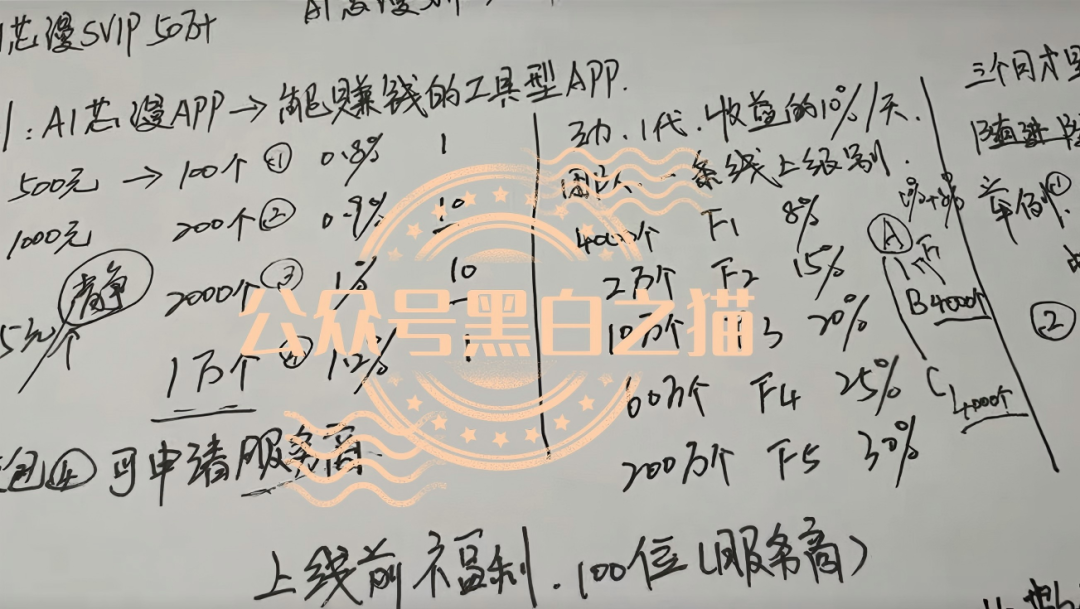 AI芯漫SVIP 50万+
1:AI芯漫APP→能赚钱的工具型APP.
500元→100个① 0.8% 1
1000元 200个② 0.9% 10
2000个③ 1% 10
5元/个
1万个④ 1.2%
包④可申请服务商
动.1代.收益的10%/天.
团队.一条线上级别.
4000个 F1 8%
2万个 F2 15%
10万个 F3 20%
60万个 F4 25%
200万个 F5 30%
A
1万
B4000个
C4000个
三个月才
②
上线前福利.100位(服务商)
公众号黑白之猫